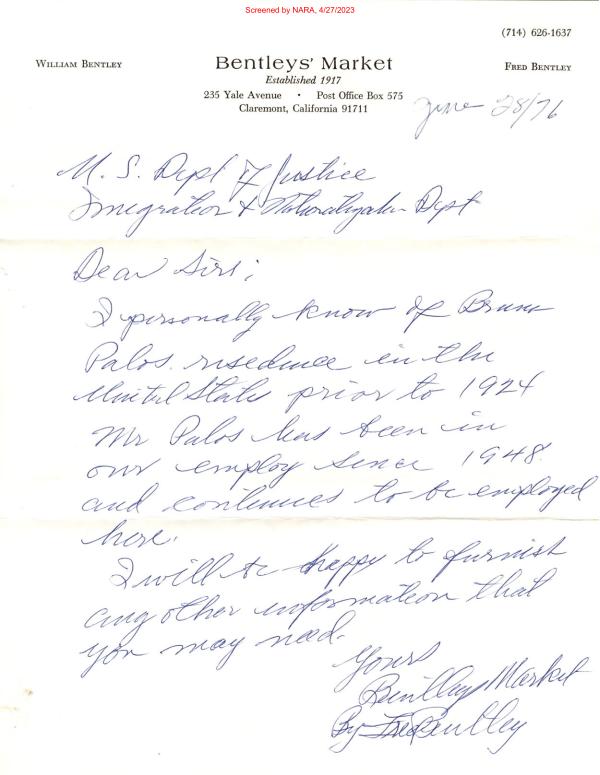 Screened by NARA, 4/27/2023
(714) 626-1637
WILLIAM BENTLEY
Bentleys' Market
FRED BENTLEY
Established 1917
235 Yale Avenue • Post Office Box 575
Claremont, California 91711
June 28/76
U. S. Dept of Justice
Imigration & Naturalization Dept
Dear Sirs;
I personally know of Bruno
Palos. residence in the
United States prior to 1924
Mr Palos has been in
our employ since 1948.
and continues to be employed
here.
I will be happy to furnish
any other information that
you may need.
Yours
Bentleys Market
By Fred Bentley